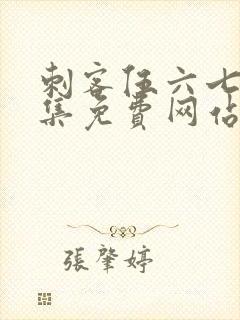 刺客伍六七
集免費网佔
張肇婷